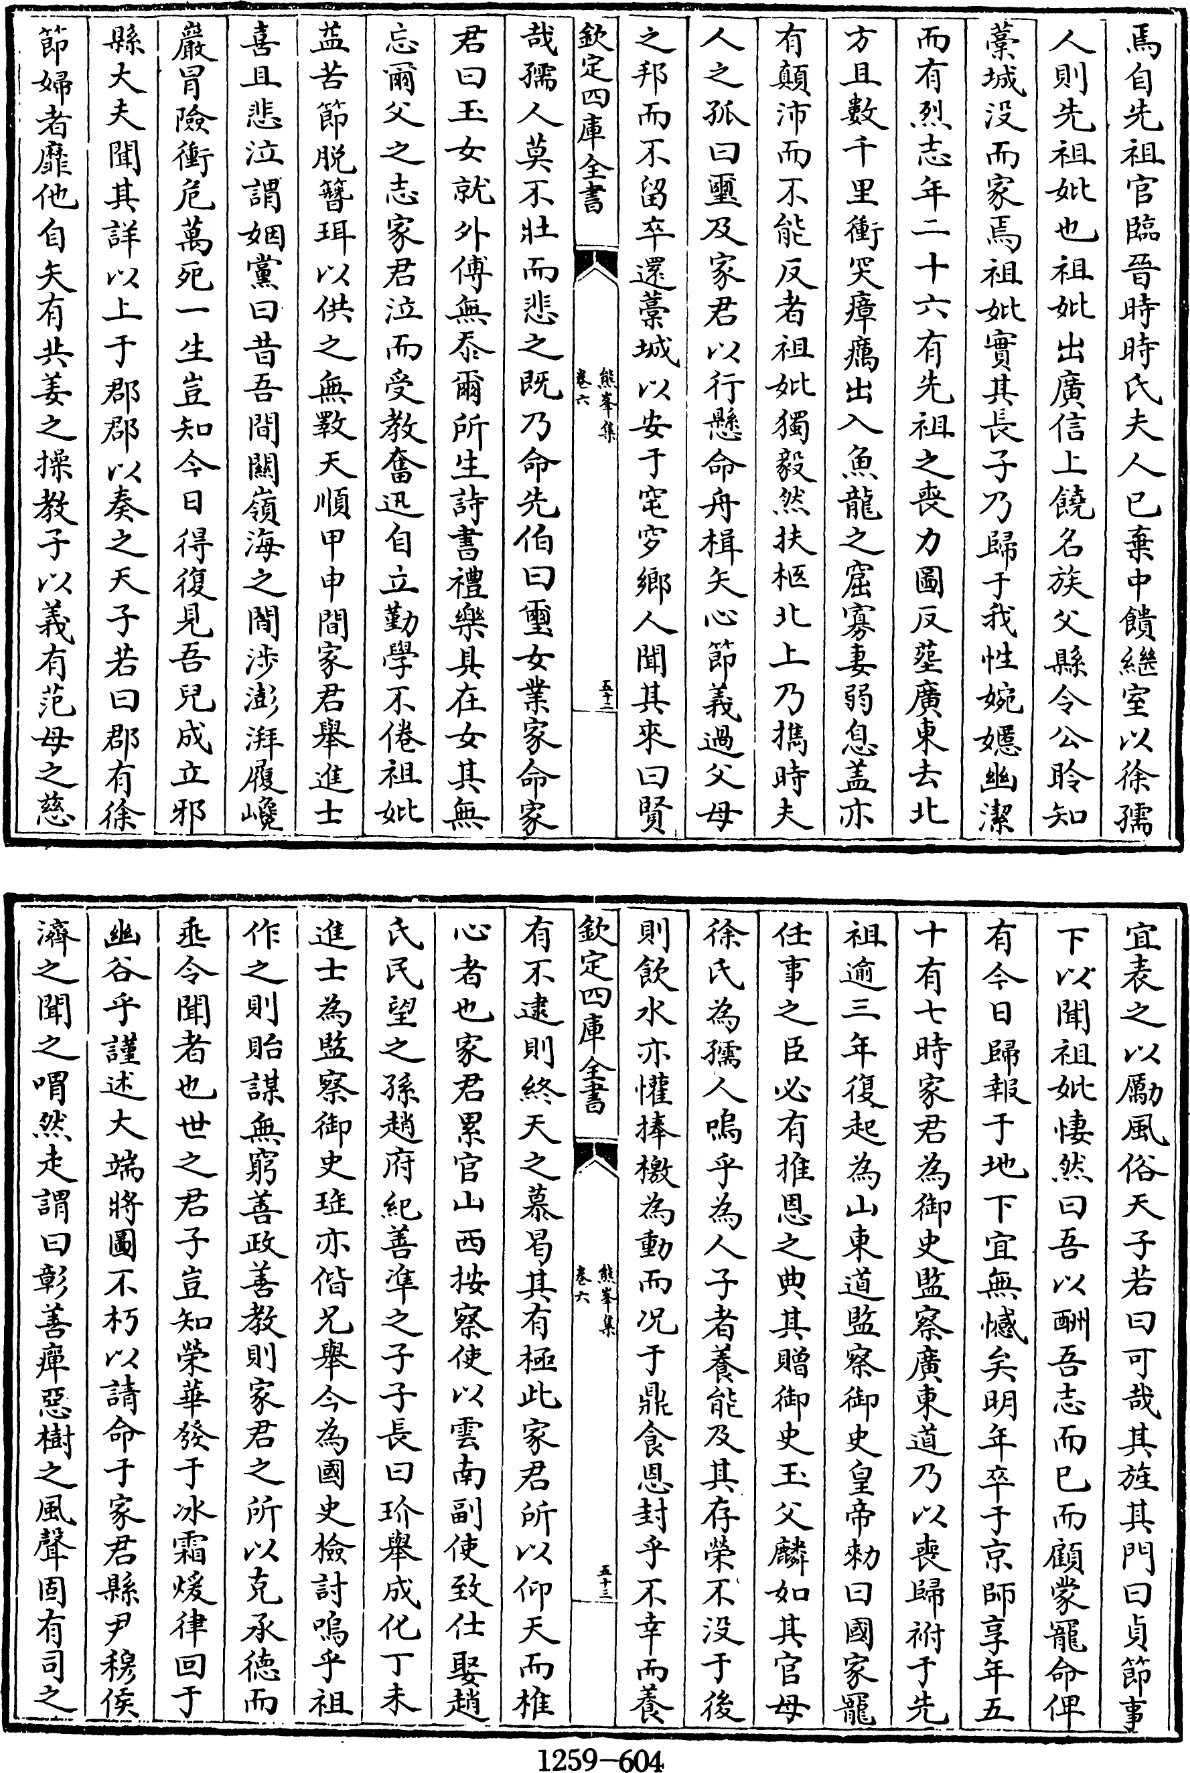 焉自先祖官臨晉時時氏夫人已棄中饋繼室以徐孺
人則先祖妣也祖妣出廣信上饒名族父縣令公聆知
藁城没而家焉祖妣實其長子乃歸于我性婉嬺幽潔
而有烈志年二十六有先祖之喪力圖反塟廣東去北
方且數千里衝突瘴癘出入魚龍之窟寡妻弱息蓋亦
有顛沛而不能反者祖妣獨毅然扶柩北上乃擕時夫
人之孤曰璽及家君以行懸命舟楫矢心節義過父母
之邦而不留卒還藁城以安于窀穸鄉人聞其來曰賢
欽定四庫全書
熊峯集
卷六
五十二
哉孺人莫不壯而悲之既乃命先伯曰璽女業家命家
君曰玉女就外傅無忝爾所生詩書禮樂具在女其無
忘爾父之志家君泣而受教奮迅自立勤學不倦祖妣
益苦節脱簪珥以供之無斁天順甲申間家君舉進士
喜且悲泣謂姻黨曰昔吾間關嶺海之間涉澎湃履巉
嚴冒險衝危萬死一生豈知今日得復見吾兒成立邪
縣大夫聞其詳以上于郡郡以奏之天子若曰郡有徐
節婦者靡他自矢有共姜之操教子以義有范母之慈
宜表之以勵風俗天子若曰可哉其旌其門曰貞節事
下以聞祖妣悽然曰吾以酬吾志而已而顧蒙寵命俾
有今日歸報于地下宜無憾矣明年卒于京師享年五
十有七時家君為御史監察廣東道乃以喪歸祔于先
祖逾三年復起為山東道監察御史皇帝勅曰國家寵
任事之臣必有推恩之典其贈御史玉父麟如其官母
徐氏為孺人嗚乎為人子者養能及其存榮不没于後
則飲水亦懽捧檄為動而况于鼎食恩封乎不幸而養
欽定四庫全書
熊峯集
卷六
五十三
有不逮則終天之慕曷其有極此家君所以仰天而椎
心者也家君累官山西按察使以雲南副使致仕娶趙
氏民望之孫趙府紀善準之子子長曰玠舉成化丁未
進士為監察御史珤亦偕兄舉今為國史檢討嗚乎祖
作之則貽謀無窮善政善教則家君之所以克承德而
乖令聞者也世之君子豈知榮華發于冰霜煖律回于
幽谷乎謹述大端將圖不朽以請命于家君縣尹穆侯
濟之聞之喟然走謂曰彰善癉惡樹之風聲固有司之
1259-604